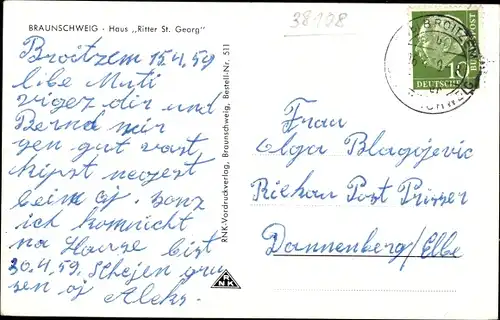 38108
BRAUNSCHWEIG - Haus „Ritter St. Georg"
Broitzem 15.4.59
libe Muti
dir und
Bernd mir
gen gut
beim sonz
ich komnicht
na Hause bist
30.4.59. Schejen gru
sen oj Aleks.
RNK-Vordruckverlag, Braunschweig, Bestell-Nr. 511
RNK
10
DEUTSCHE BUNDESPOST
Frau
Olga Blagojevic
Riekau Post Prisser
Dannenberg/Elbe